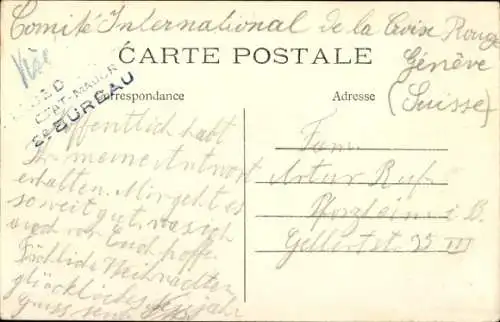 Comité International de la Croix Rouge
Genève
(Suisse)
CARTE POSTALE
Visé
ETAT-MAJOR
2e BUREAU
Correspondance
Adresse
Hoffentlich habt
Ihr meine Antwort
erhalten. Mir geht es
soweit gut, was ich
auch von Euch hoffe.
Fröhliche Weihnachten
glückliches Neujahr
Gruss sendet
Fam.
Artur Ruf
Pforzheim i. B.
Gellertstr. 35 III